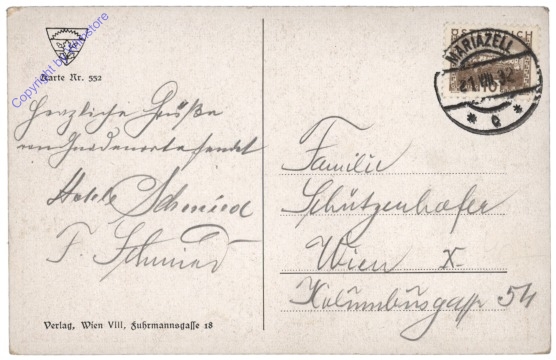 Karte Nr. 552
Herzliche Grüße
vom Gnadenorte sendet
Schmied
F. Schmied
Verlag, Wien VIII, Fuhrmannsgasse 18
ÖSTERREICH
MARIAZELL
21.VIII.32
* c *
Familie
Schützenhofer
Wien X.
Kolumbusgasse 54
Copyright by ansichtskarten-store